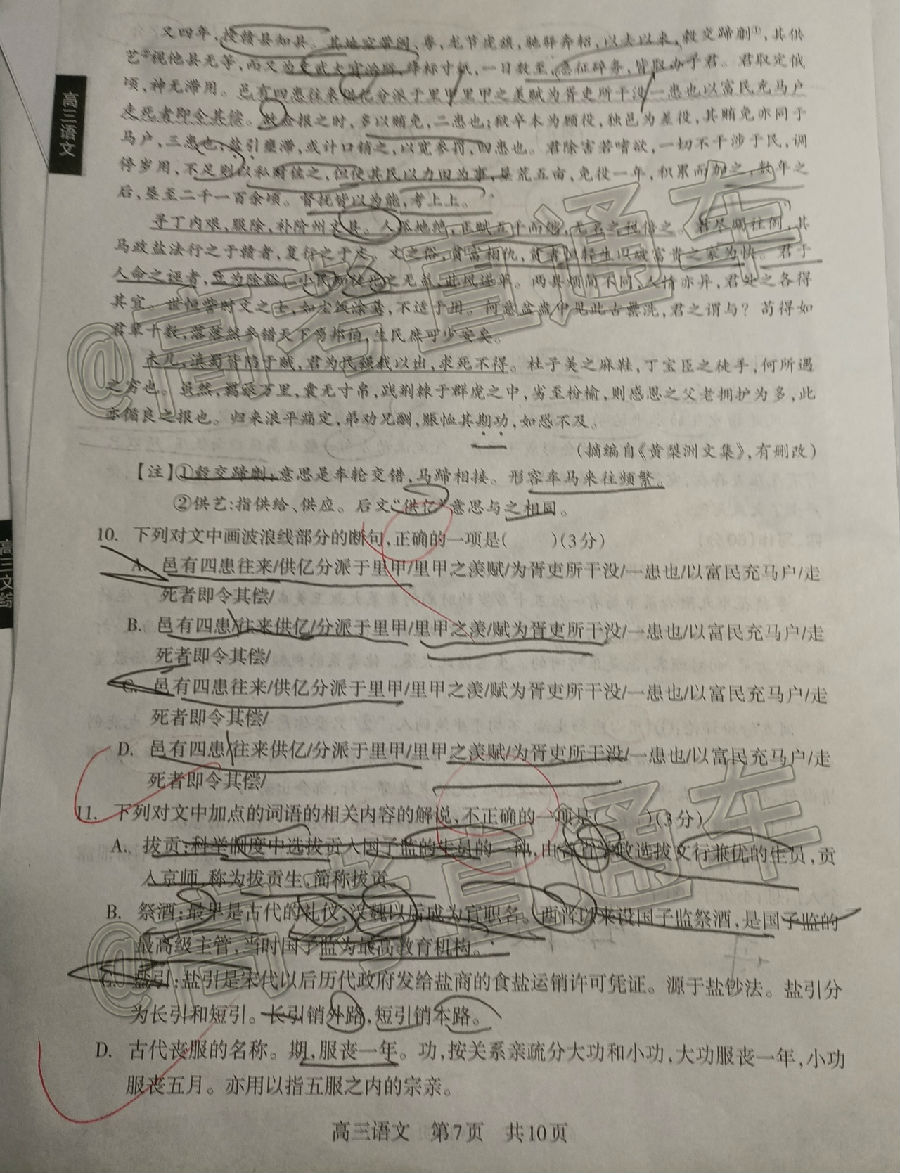 又四年，授绩县知县。其地空带阁、粤，龙节虎旗，驰驿奔轺，以去以来，毂交蹄劘①，其供
艺②视他县无等，而又为文武大官治所，一日数至，急征碎务，皆取办于君。君取定俄
顷，神无滞用。邑有四患往来供亿分派于里甲里甲之羡赋为胥吏所干没一患也以富民充马户
走死者即令其偿。故佥报之时，多以贿免，二患也；狱卒本为顾役，独邑为差役，其贿免亦同于
马户，三患也；盐引壅滞，或计口销之，以宽参罚，四患也。君除害若嗜欲，一切不干涉于民，调
停岁用，不足则以私财偿之，但使其民以力田为事，垦荒五亩，免役一年，积累而加之，数年之
后，垦至二千一百余顷。督抚皆以为能，考上上。
寻丁内艰，服除，补阶州文县。
马政盐法行之于绩者，复行之于文。文之俗，贫富相仇，
人命之诬者，
其宜。世恒訾时文之士，如尘饭涂羹，不适于用。何意盆盎中见此古罍洗，君之谓与？苟得如
君辈十数，落落然参错天下为邦伯，生民庶可少安矣。
未几，滇蜀皆陷于贼，君为民强栽以出，求死不得。杜子美之麻鞋，丁宝臣之徒手，何所遇
之穷也。虽然，羁旅万里，囊无寸帛，践荆棘于群虎之中，劣至枌榆，则感恩之父老拥护为多，此
亦循良之报也。归来浪平痛定，弟劝兄酬，赈恤其期功，如恐不及。
（摘编自《黄梨洲文集》，有删改）
【注】①毂交蹄劘，意思是车轮交错，马蹄相接。形容车马来往频繁。
②供艺：指供给、供应。后文“供亿”意思与之相同。
10. 下列对文中画波浪线部分的断句，正确的一项是（ ）（3分）
A. 邑有四患往来/供亿分派于里甲/里甲之羡赋/为胥吏所干没/一患也/以富民充马户/走
死者即令其偿/
B. 邑有四患/往来供亿/分派于里甲/里甲之羡/赋为胥吏所干没/一患也/以富民充马户/走
死者即令其偿/
C. 邑有四患往来/供亿分派于里甲/里甲之羡/赋为胥吏所干没/一患也/以富民充马户/走
死者即令其偿/
D. 邑有四患/往来供亿/分派于里甲/里甲之羡赋/为胥吏所干没/一患也/以富民充马户/走
死者即令其偿/
11. 下列对文中加点的词语的相关内容的解说，不正确的一项是（ ）（3分）
A. 拔贡：科举制度中选拔贡入国子监的生员的一种，由各省学政选拔文行兼优的生员，贡
入京师，称为拔贡生，简称拔贡。
B. 祭酒：最早是古代的礼仪，汉魏以后成为官职名。西晋以来设国子监祭酒，是国子监的
最高级主管，当时国子监为最高教育机构。
C. 盐引：盐引是宋代以后历代政府发给盐商的食盐运销许可凭证。源于盐钞法。盐引分
为长引和短引。长引销外路，短引销本路。
D. 古代丧服的名称。期，服丧一年。功，按关系亲疏分大功和小功，大功服丧一年，小功
服丧五月。亦用以指五服之内的宗亲。
高三语文 第7页 共10页
高三语文
@高考直通车
@高考直通车